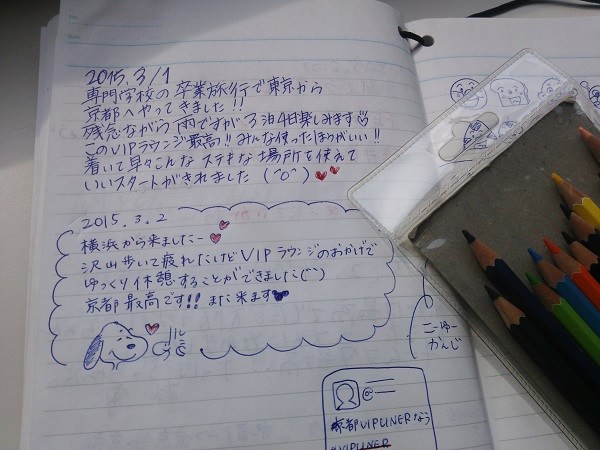 2015.3/1
専門学校の卒業旅行で東京から
京都へやってきました!!
残念ながら雨ですが3泊4日楽しみます
このVIPラウンジ最高!!みんな使ったほうがいい!!
着いて早々こんなステキな場所を使えて
いいスタートがきれました(^o^)
2015.3.2
横浜から来ましたー
沢山歩いて疲れたけどVIPラウンジのおかげで
ゆっくり休憩することができました(^^)
京都最高です!!また来ます
こーゆー
かんじ
@
京都VIPLINERなら
VIPLINER